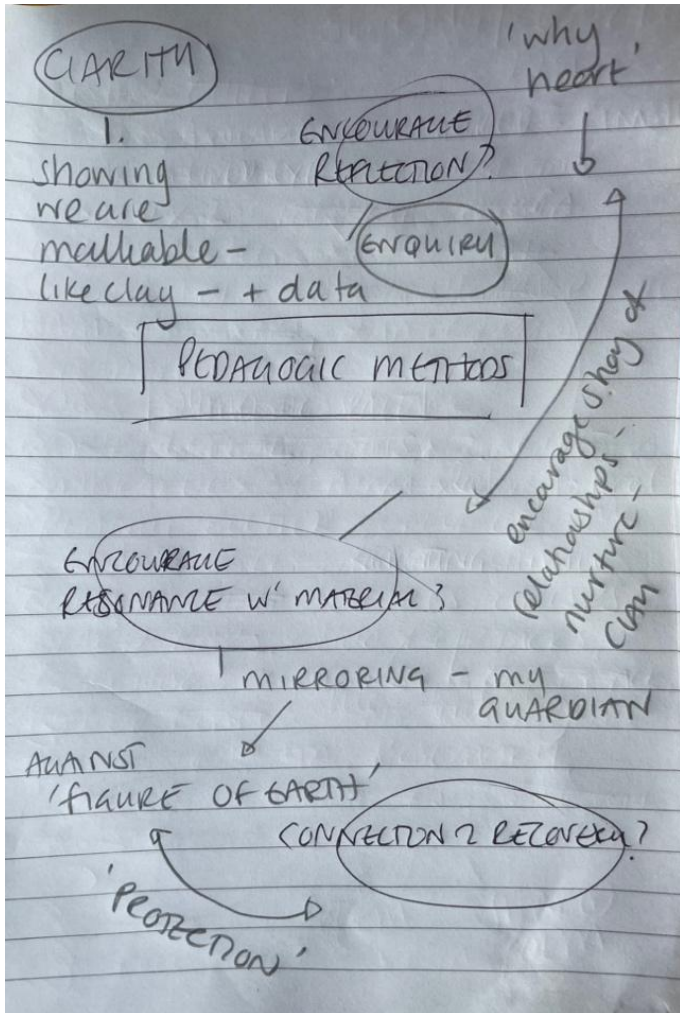 CLARITY
'why
heart'
1.
showing
we are
malleable -
like clay - + data
ENCOURAGE
REFLECTION?
ENQUIRY
PEDAGOGIC METHODS
encourage of
relationships -
nurture -
clay
ENCOURAGE
RESONANCE W' MATERIAL?
MIRRORING - my
GUARDIAN
AGAINST
'FIGURE OF EARTH'
CONNECTION 2 RECOVERY?
'PROTECTION'